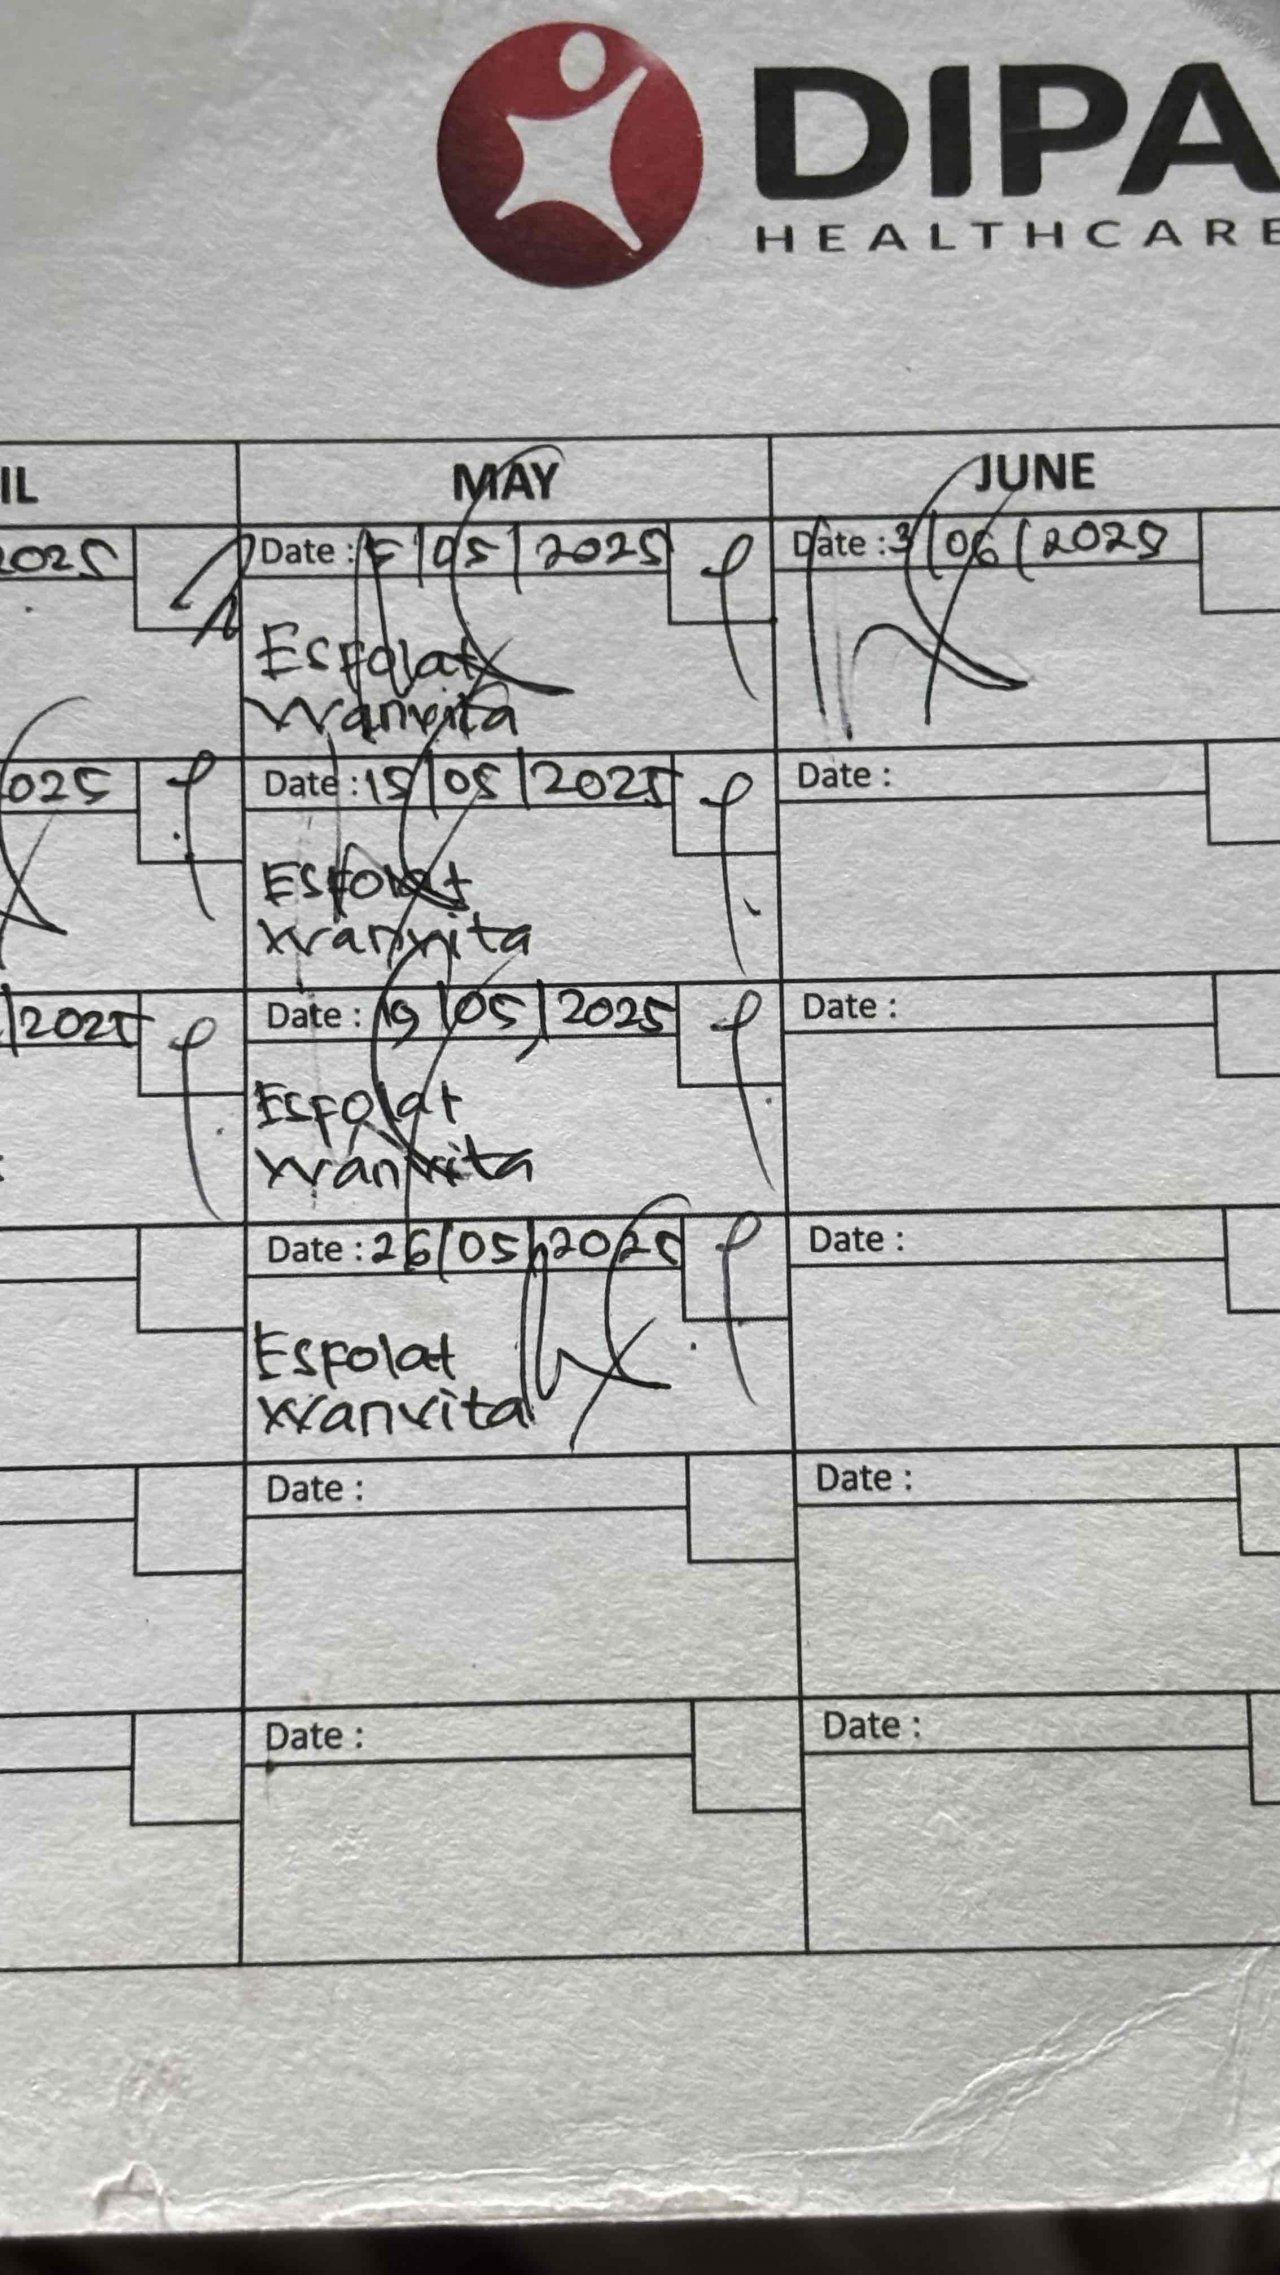 DIPA
HEALTHCARE
IL
MAY
JUNE
2025
Date : 5/05/2025
Date : 3/06/2025
Esfolat
Wanvita
025
Date : 15/05/2025
Date :
Esfolat
Wanvita
/2025
Date : 19/05/2025
Date :
Esfolat
Wanvita
Date : 26/05/2025
Date :
Esfolat
Wanvita
Date :
Date :
Date :
Date :